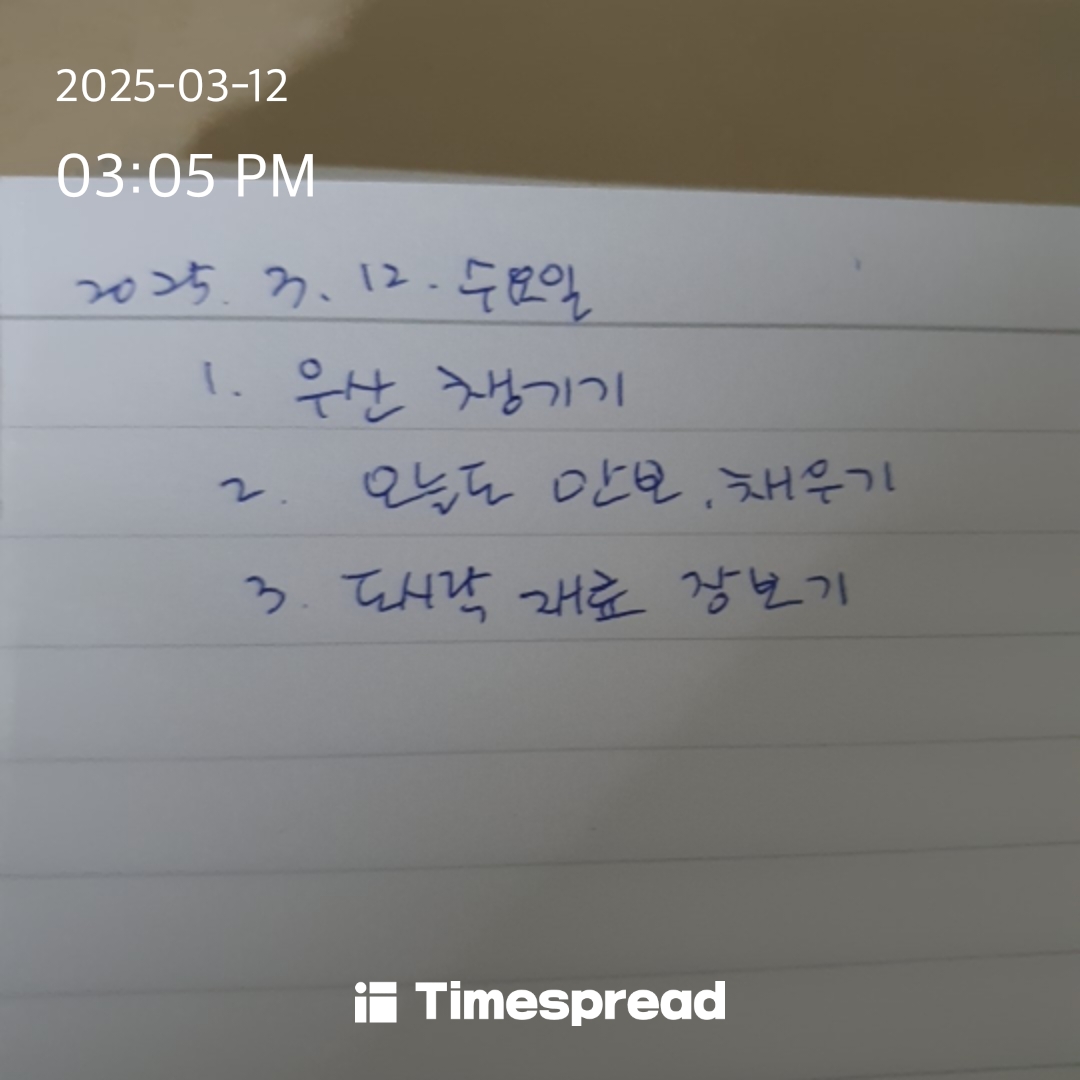 2025-03-12
03:05 PM
2025. 3. 12. 수요일
1. 우산 챙기기
2. 오늘도 만보 채우기
3. 도시락 재료 장보기
Timespread